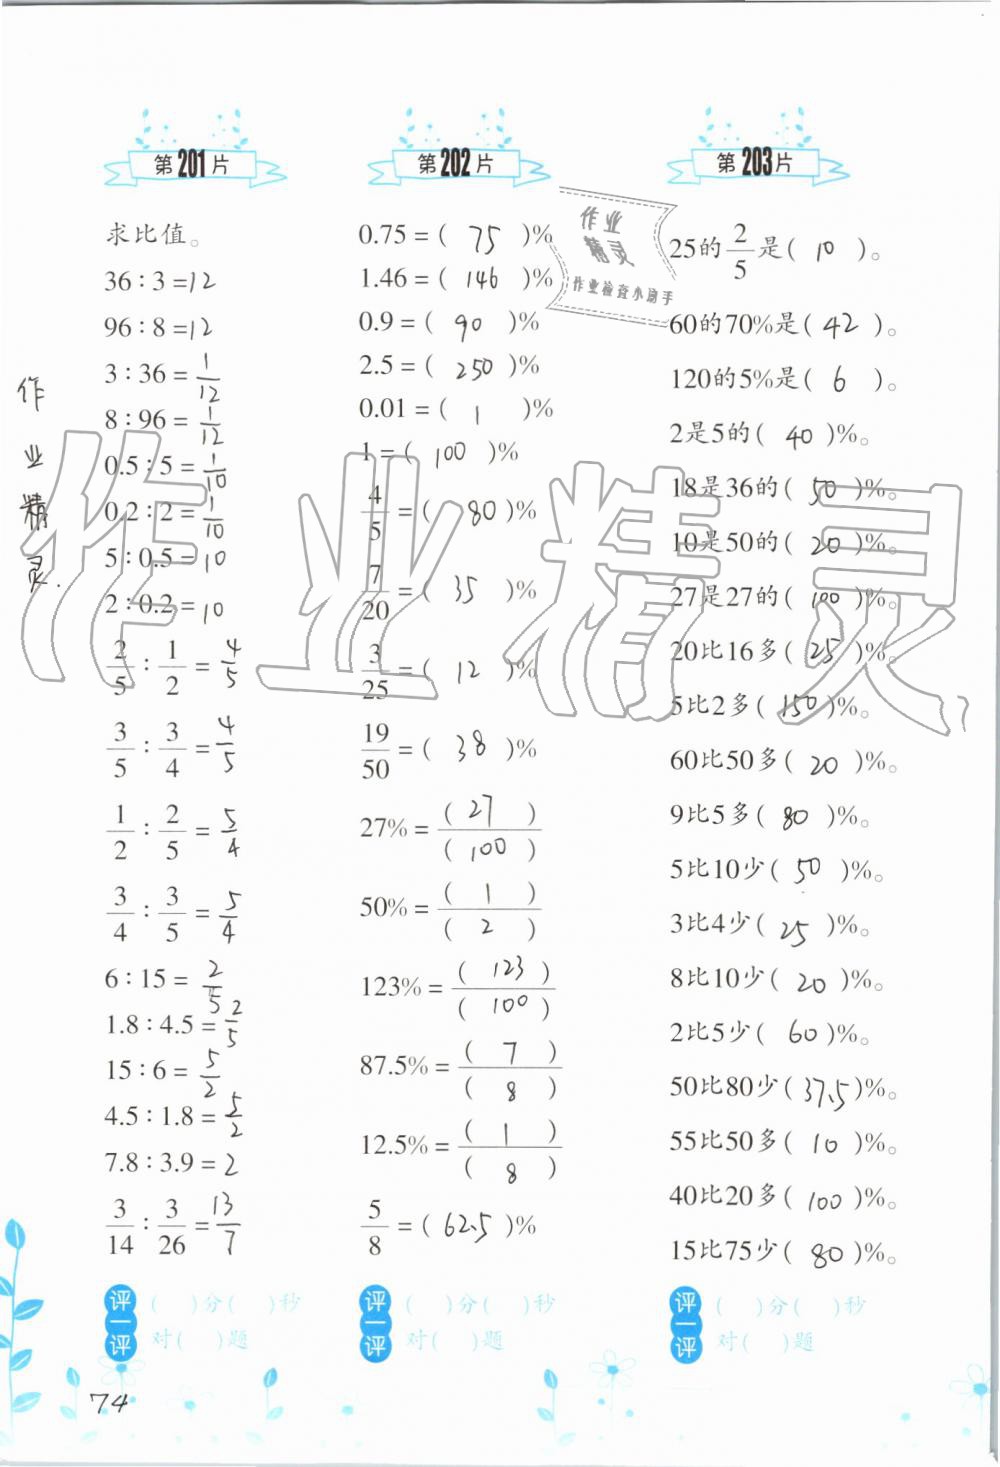 第201片
求比值。
36:3=12
96:8=12
3:36=1/12
8:96=1/12
0.5:5=1/10
0.2:2=1/10
5:0.5=10
2:0.2=10
2/5:1/2=4/5
3/5:3/4=4/5
1/2:2/5=5/4
3/4:3/5=5/4
6:15=2/5
1.8:4.5=2/5
15:6=5/2
4.5:1.8=5/2
7.8:3.9=2
3/14:3/26=13/7
评一评 ( )分( )秒
对( )题
第202片
0.75=( 75 )%
1.46=( 146 )%
0.9=( 90 )%
2.5=( 250 )%
0.01=( 1 )%
1=( 100 )%
4/5=( 80 )%
7/20=( 35 )%
3/25=( 12 )%
19/50=( 38 )%
27%=( 27 )/( 100 )
50%=( 1 )/( 2 )
123%=( 123 )/( 100 )
87.5%=( 7 )/( 8 )
12.5%=( 1 )/( 8 )
5/8=( 62.5 )%
评一评 ( )分( )秒
对( )题
第203片
25的2/5是( 10 )。
60的70%是( 42 )。
120的5%是( 6 )。
2是5的( 40 )%。
18是36的( 50 )%。
10是50的( 20 )%。
27是27的( 100 )%。
20比16多( 25 )%。
5比2多( 150 )%。
60比50多( 20 )%。
9比5多( 80 )%。
5比10少( 50 )%。
3比4少( 25 )%。
8比10少( 20 )%。
2比5少( 60 )%。
50比80少( 37.5 )%。
55比50多( 10 )%。
40比20多( 100 )%。
15比75少( 80 )%。
评一评 ( )分( )秒
对( )题
作业精灵
作业
精灵
作业检查小助手
作业精灵
74